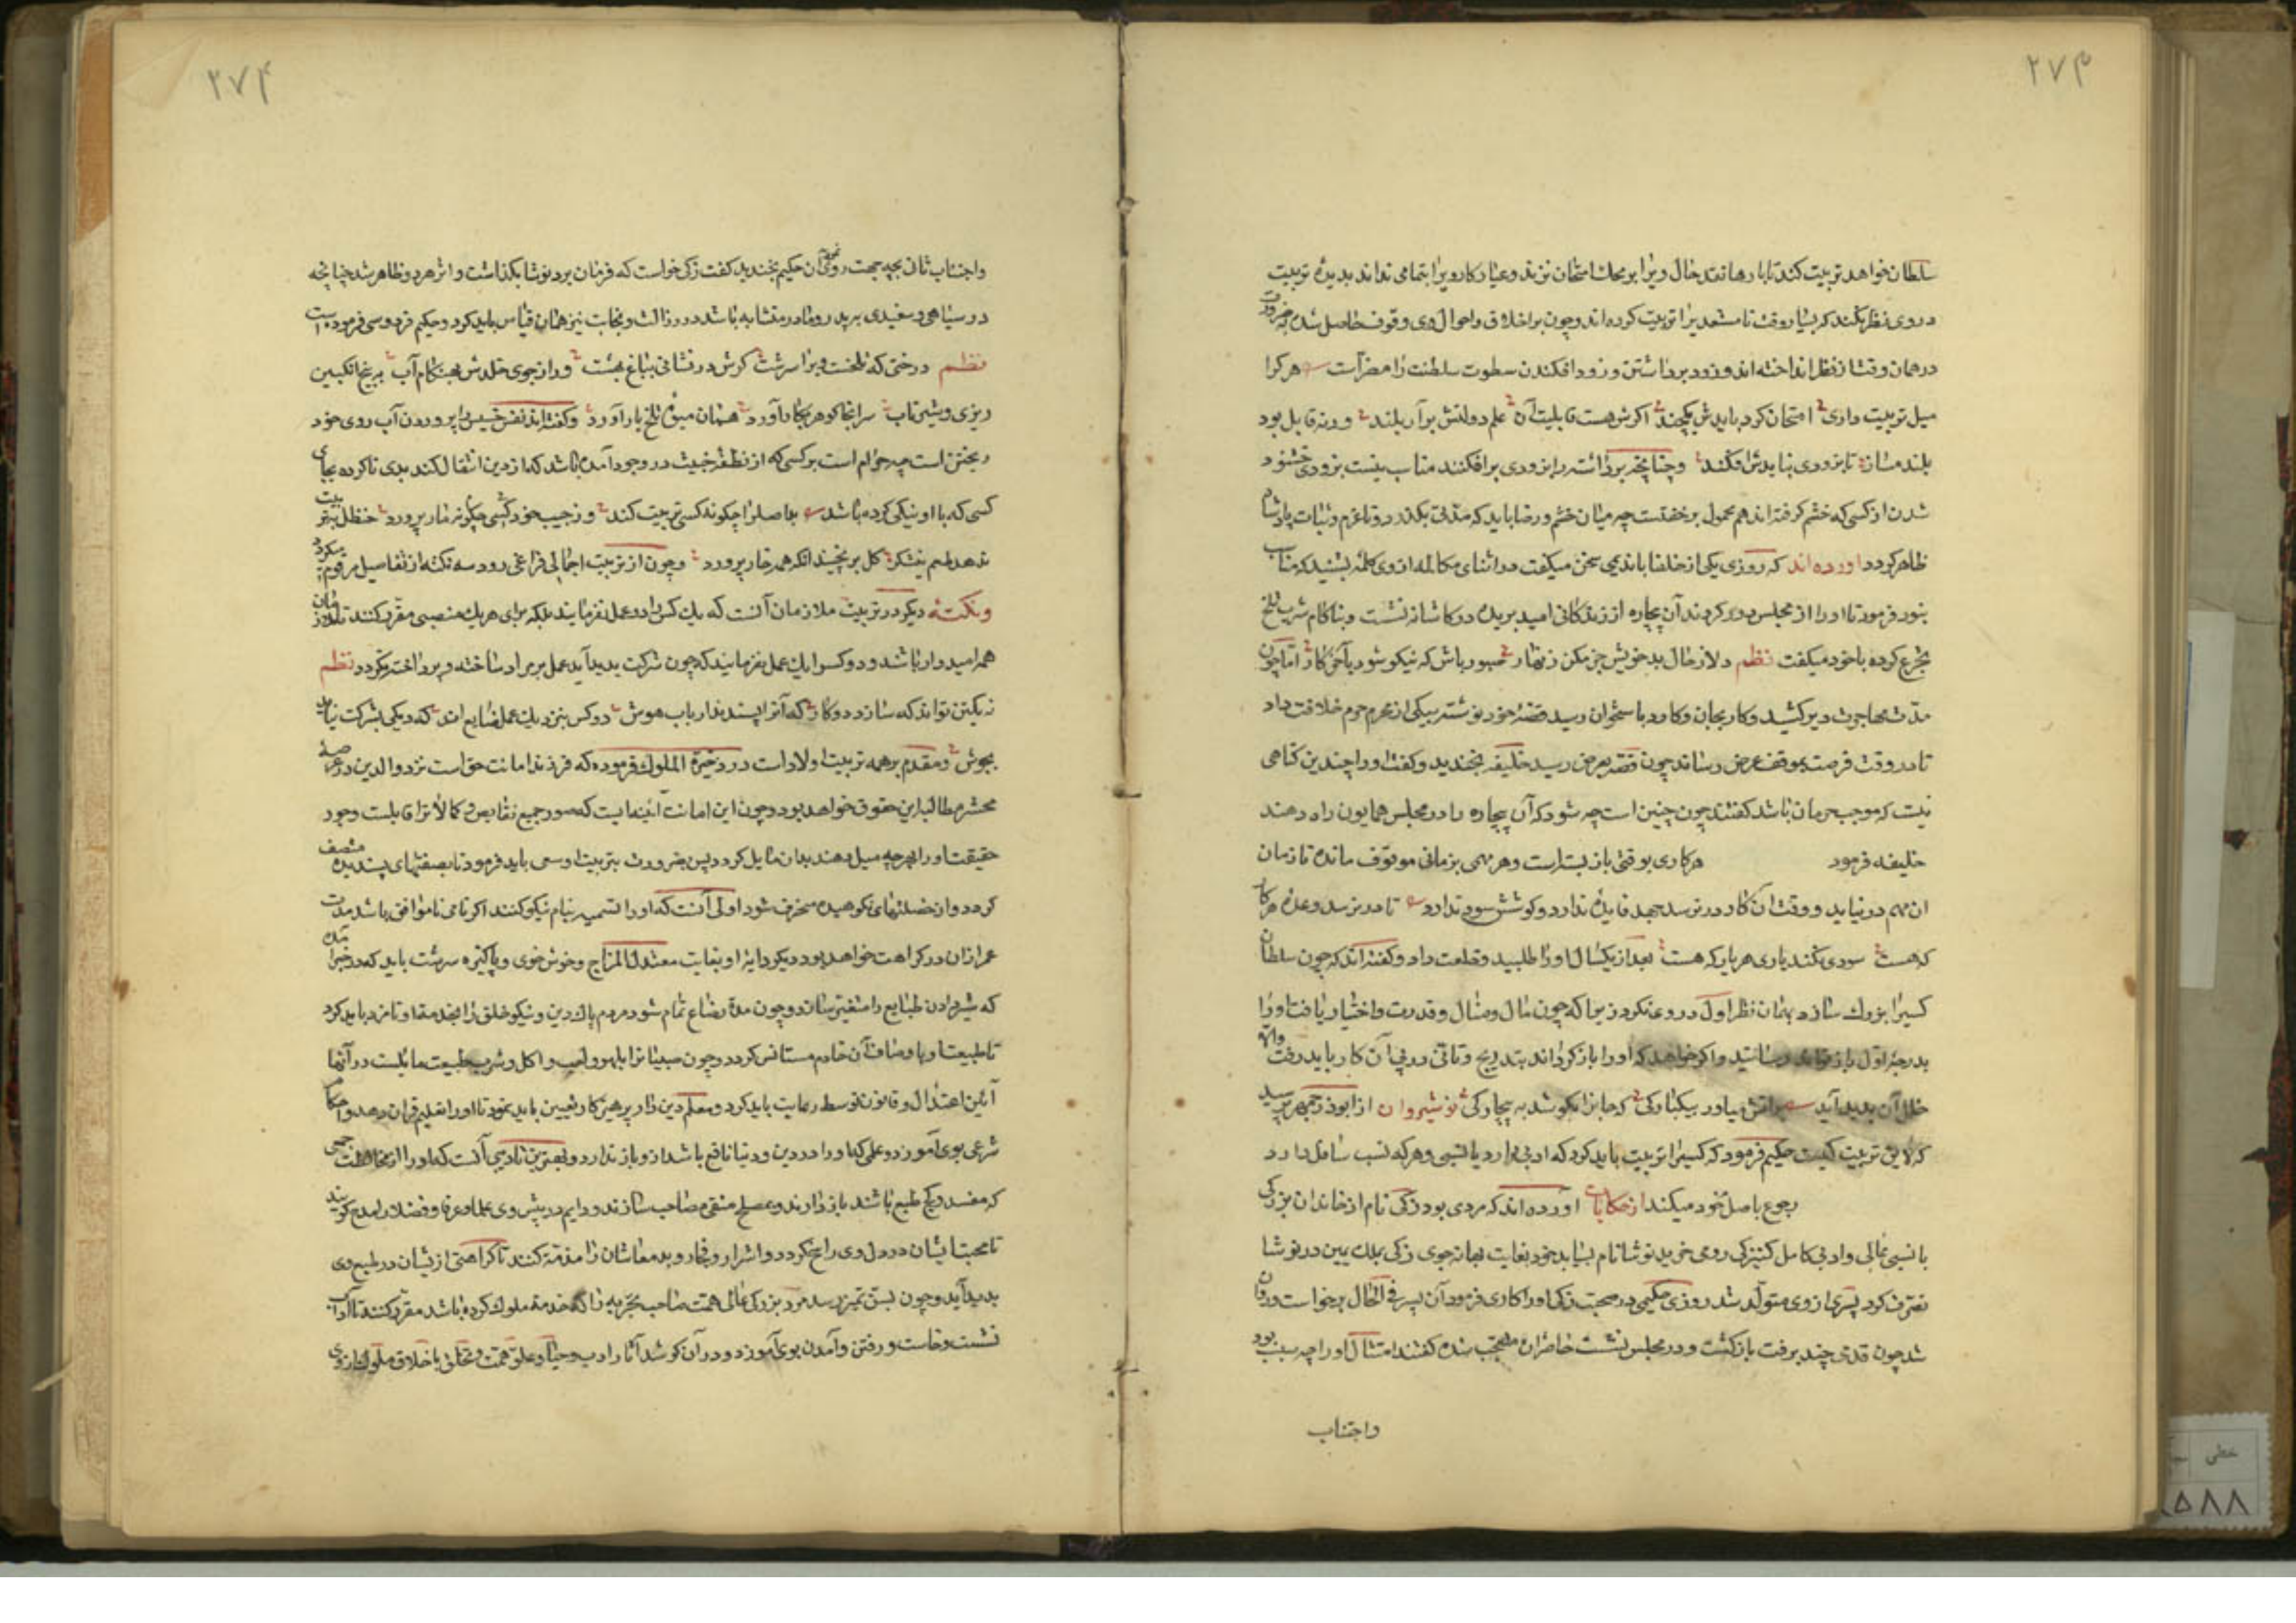 ۲۷۳
سلطان خواهد تربیت کند تا بارها نقد حال ویرا بر محک امتحان نزند و عیار کار ویرا بتمامی نداند بدیدهٔ تربیت
در وی نظر نکند که بسیار وقت نامستعدیرا تربیت کرده‌اند و چون بر اخلاق و احوال وی وقوف حاصل شده بضرورت
در همان وقت از نظر انداخته‌اند و زود برداشتن و زود افکندن سطوت سلطنت را مضر است هر کرا
میل تربیت داری امتحان کرد بایدش یکچند اگرش هست قابلیت آن علم دولتش برآر بلند ورنه قابل بود
بلند مساز تا بزودی نبایدش افکند و چنانچه برداشته را بزودی برافکنند مناسب نیست بزودی خشنود
شدن از کسی که خشم گرفته‌اند هم محمول بر خفتست چه میان خشم و رضا باید که مدتی بگذرد تا عزم و ثبات پادشاه
ظاهر گردد آورده‌اند که روزی یکی از خلفا با ندیمی سخن میگفت در اثنای مکالمه از وی کلمهٔ بشنید که مناسب
نبود فرمود تا او را از مجلس دور کردند آن بیچاره از زندگانی امید بریده در کاشانه نشست و بناکام شربت تلخ
تجرع کرده با خود میگفت نظم دلا ز حال بد خویش جزع مکن زنهار صبور باش که نیکو شود بآخر کار اما چون
مدت مهاجرت دیر کشید و کار بجان و کارد باستخوان رسید قصهٔ خود نوشته بیکی از محرم حرم خلافت داد
تا در وقت فرصت بموقف عرض رساند چون قصه بعرض رسید خلیفه بخندید و گفت او را چندین گناهی
نیست که موجب حرمان باشد گفتند چون چنین است چه شود که آن بیچاره را در مجلس همایون راه دهند
خلیفه فرمود هر کاری بوقتی باز بسته است و هر مهمی بزمانی موقوف مانده تا زمان
آن مهم در نیاید و وقت آن کار در نرسد جهد فایده ندارد و کوشش سود ندارد تا در نرسد وعدهٔ هر کار
که هست سودی نکند یاری هر یار که هست بعد از یکسال او را طلبید و خلعت داد و گفته‌اند که چون سلطان
کسیرا بزرگ سازد بهمان نظر اول در وی ننگرد زیرا که چون مال و منال و قدرت و اختیار یافت او را
بدرجه اول باز نتواند رسانید و اگر خواهد که او را بازگرداند بتدریج و تأنی در پی آن کار باید رفت والا
خلل آن پدید آید براتش میاور بیکبارگی که جانرا بکوشد به بیچارگی نوشیروان از ابوذرجمهر پرسید
که لایق تربیت کیست حکیم فرمود که کسیرا تربیت باید کرد که ادبی دارد یا نسبی و هر که نسب شامل دارد
رجوع باصل خود میکند از حکایات آورده‌اند که مردی بود زکی نام از خاندان بزرگ
با نسبی عالی و ادبی کامل کنیزکی رومی خرید نوشا نام بسا بد خود بغایت بهانه جوی زکی بملک یمین در نوشا
تصرف کرد پسری از وی متولد شد روزی حکیمی در صحبت زکی او را کاری فرمود آن پسر فی الحال برخاست و روان
شد چون قدمی چند برفت بازگشت و در مجلس نشست حاضران متعجب شده گفتند امتثال او را چه سبب بود
واجتناب
۲۷۴
واجتناب ثانی بچه جهت روی نمود آن حکیم بخندید گفت زکی خواست که فرمان برد نوشا نگذاشت و اثر هر دو ظاهر شد چنانچه
در سیاهی و سفیدی بر پدر و مادر متشابه باشد در رذالت و نجابت نیز همان قیاس باید کرد و حکیم فردوسی فرموده است
نظم درختی که تلخست ویرا سرشت گرش درنشانی بباغ بهشت ور از جوی خلدش بهنگام آب به بیخ انگبین
ریزی و شیر ناب سرانجام گوهر بکار آورد همان میوهٔ تلخ بار آورد و گفته‌اند نفس خسیس را پروردن آب روی خود
ریختن است چه حرام است بر کسی که از نطفهٔ خبیث در وجود آمده باشد که از دین انتقال کند بدی ناکرده بجای
کسی که با او نیکی کرده باشد بد اصلرا چگونه کسی تربیت کند وز جیب خود کسی چگونه مار پرورد حنظل بتربیت
ندهد طعم نیشکر گل برنچیند آنکه همه خار پرورد و چون از تربیت اجمالی فراغی رود سه نکته از تفاصیل مرقوم میگردد
و نکتهٔ دیگر در تربیت ملازمان آنست که یک کس را دو عمل نفرمایند بلکه برای هر یک منصبی مقرر کنند تا ملازمان
همه امیدوار باشند و دو کس را یک عمل نفرمایند که چون شرکت پدید آید عمل بر مراد ساخته و پرداخته نگردد نظم
ز یکتن تواند که سازد دو کار که آنرا پسندند ارباب هوش دو کس نیز در یک عمل ضایع‌اند که دیگی بشرکت نیاید
بجوش و مقدم بر همه تربیت اولاد است در ذخیرة الملوک فرموده که فرزندا امانت حق است نزد والدین در عرصهٔ
محشر مطالب این حقوق خواهد بود و چون این امانت آئینه‌ایست که صور جمیع نقایص و کمالاترا قابلست وجود
حقیقت او را بهر چه میل دهند بدان مایل گردد پس بضرورت بتربیت او سعی باید فرمود تا بصفتهای پسندیده متصف
گردد و از خصلتهای نکوهیده منحرف شود اولی آنست که او را تسمیه بنام نیکو کنند اگر نامی ناموافق باشد مدت
عمر از آن در کراهت خواهد بود دیگر دایهٔ او بغایت معتدل المزاج و خوش خوی و پاکیزه سرشت باید که در خبر آمده
که شیر دادن طبایع را متغیر سازد و چون مدة رضاع تمام شود مردم پاک دین و نیکو خلق را بخدمة او نامزد باید کرد
تا طبیعت او باوصاف آن خادم مستانس گردد و چون صبیانرا بلهو و لعب و اکل و شرب طبیعت مایلست در آنها
آئین اعتدال و قانون توسط رعایت باید کرد و معلم دین دار پرهیزکار تعیین باید نمود تا او را تعلیم قرآن دهد و احکام
شرعی بوی آموزد و علمی که او را در دین و دنیا نافع باشد ازو باز ندارد و بهترین تادیبی آنست که او را از مخالطت جمعی
که مفسد و کج طبع باشند باز دارند و بصلح متقی مصاحب سازند و دایم در پیش وی علما و عرفا و فضلا را مدح گویند
تا محبت ایشان در دل وی راسخ گردد و اشرار و فجار و بد معاشان را مذمة کنند تا کراهتی از ایشان در طبع وی
پدید آید و چون بسن تمیز رسد مرد بزرگ عالی همت صاحب تجربه را که خدمة ملوک کرده باشد مقرر کنند تا آداب
نشست و خاست و رفتن و آمدن بوی آموزد و در آن کوشد آثار ادب و حیا و علو همت و تخلق باخلاق ملوک از وی
خطی
۵۸۸